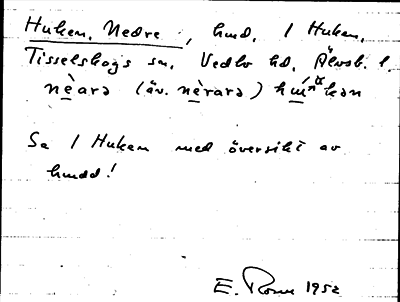 Huken, Nedre, hmd. 1 Huken,
Tisselskogs sn, Vedbo hd, Älvsb. l.
nèarə (äv. nèrarə) hu kən
Se 1 Huken med översikt av
hmdd!
E. 1952